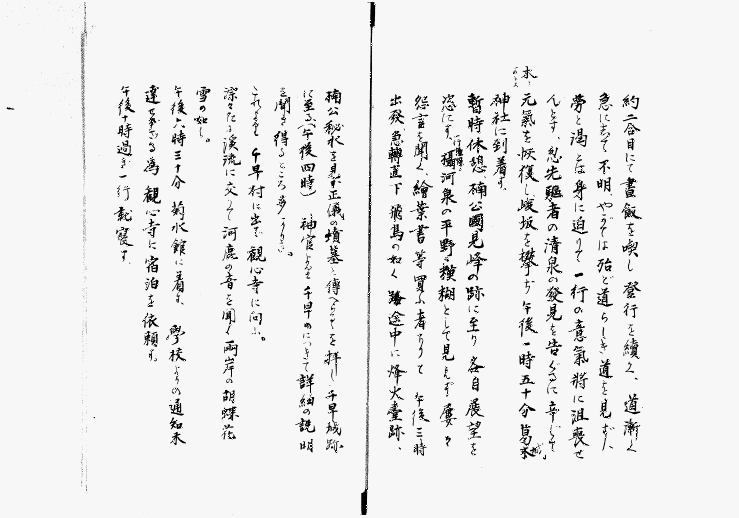 約二合目にて晝飯を喫し登行を續く、道漸く
急にして不明、やがては殆ど道らしき道を見ず、
勞と渇とは身に迫りて一行の意氣將に沮喪せ
んとす、忽先驅者の清泉の發見を告ぐるに辛じて
元氣を恢復し峻坂を攀ぢ午後一時五十分葛木
神社に到着す。
暫時休憩、楠公國見峰の跡に至り各自展望を
恣にす。攝河泉の平野は模糊として見えず屢々
怨言を聞く、繪葉書等買ふ者ありて 午後三時
出發 急轉直下 飛鳥の如く 途中に烽火臺跡、
楠公秘水を見 正儀の墳墓と傳へらるゝを拝し千早城跡
に至る(午後四時) 神官より千早のにつきて詳細の説明
を聞き得るところ多かりき。
これより千早村に出で觀心寺に向ふ。
淙々たる溪流に交りて河鹿の音を聞く兩岸の胡蝶花
雪の如し。
午後六時三十分 菊水館に着す、學校よりの通知未
達なる爲 觀心寺に宿泊を依頼す。
午後十時過ぎ一行就寢す。